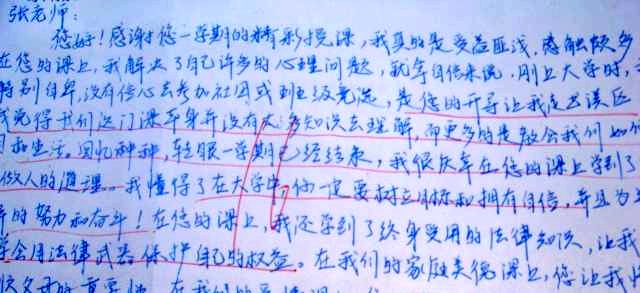 张老师：
您好！感谢您一学期的精彩授课，我真的是受益匪浅，感触颇多
在您的课上，我解决了自己许多的心理问题，就拿自信来说，刚上大学时，
特别自卑，没有信心去参加社团或班级竞选，是您的开导让我走出误区
觉得我们这门课本身并没有太多知识去理解，而更多的是教会我们如何
和生活。回忆种种，转眼一学期已经结束，我很庆幸在您的课上学到了
做人的道理。我懂得了在大学中，一定要树立目标和拥有自信，并且为之
的努力和奋斗！在您的课上，我还学到了终身受用的法律知识，让我
学会用法律武器保护自己的权益。在我们的家庭美德课上，您让我
父母的重要性，在我们的